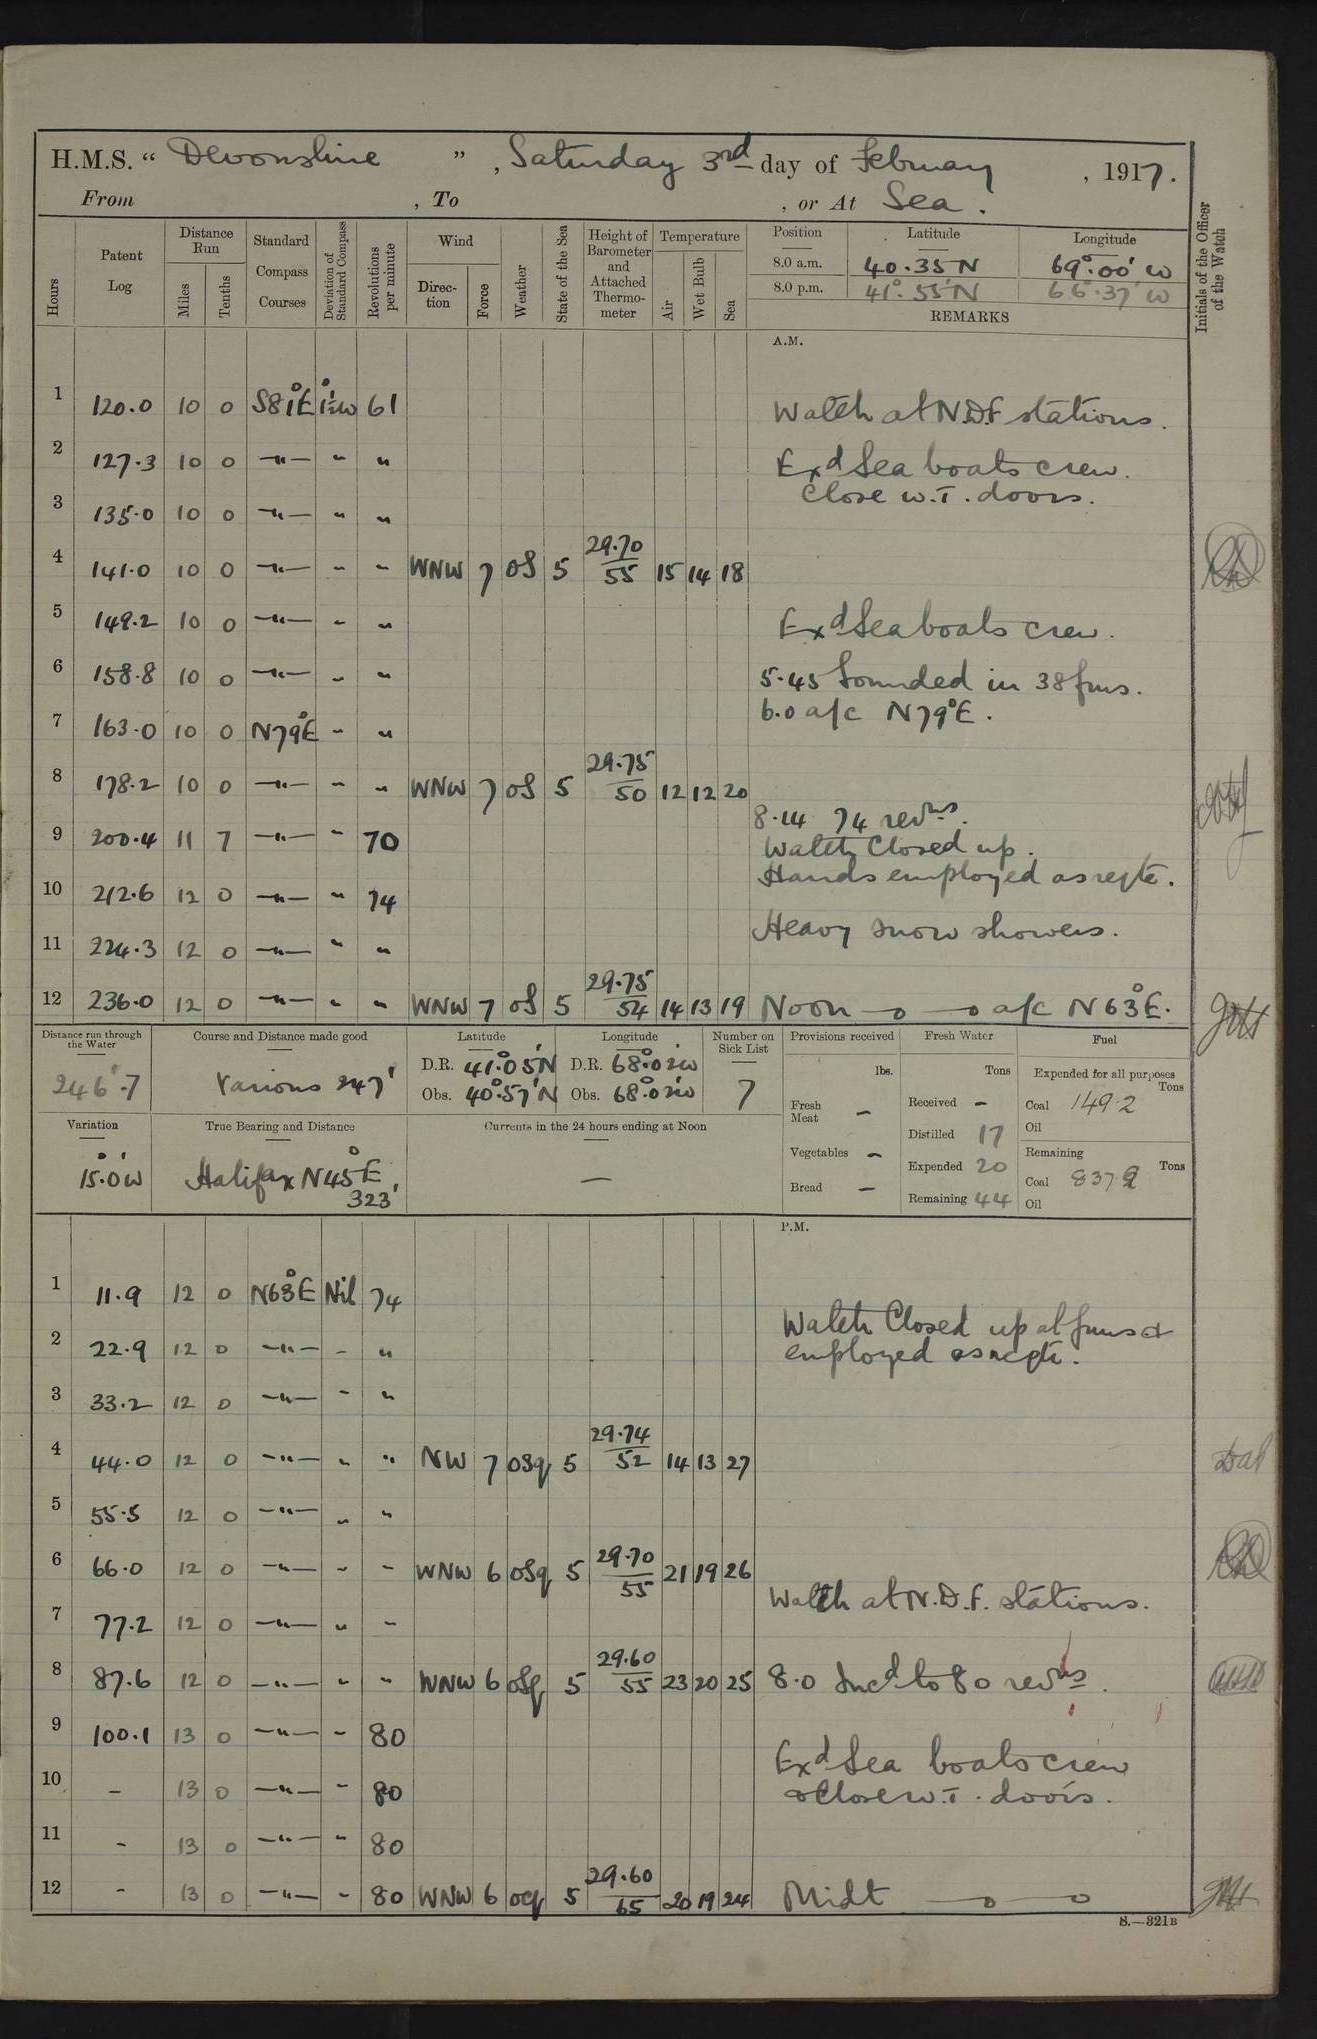 H.M.S. “ Devonshire ” , Saturday 3rd day of February , 1917.
From , To , or At Sea.
Hours
Patent Log
Distance Run
Miles
Tenths
Standard Compass Courses
Deviation of Standard Compass
Revolutions per minute
Wind
Direction
Force
Weather
State of the Sea
Height of Barometer and Attached Thermometer
Temperature
Air
Wet Bulb
Sea
Position Latitude Longitude
8.0 a.m. 40.35 N 69°.00' W
8.0 p.m. 41°.55' N 66°.37' W
REMARKS
Initials of the Officer of the Watch
A.M.
1 120.0 10 0 S81°E 1½°W 61
Watch at N.D.F stations.
2 127.3 10 0 —"— " "
Exd Sea boats crew.
Close W.T. doors.
3 135.0 10 0 —"— " "
4 141.0 10 0 —"— " " WNW 7 OS 5 29.70/55 15 14 18
5 149.2 10 0 —"— " "
Exd Sea boats crew.
6 158.8 10 0 —"— " "
5.45 Sounded in 38 fms.
6.0 a/c N79°E.
7 163.0 10 0 N79°E " "
8 178.2 10 0 —"— " " WNW 7 OS 5 29.75/50 12 12 20
8.14 74 revns.
9 200.4 11 7 —"— " 70
Watch Closed up.
Hands employed as reqte.
10 212.6 12 0 —"— " 74
11 224.3 12 0 —"— " "
Heavy snow showers.
12 236.0 12 0 —"— " " WNW 7 OS 5 29.75/54 14 13 19 Noon —o —o a/c N63°E.
Distance run through the Water
246'.7
Course and Distance made good
Various 247'
Latitude
D.R. 41°.05'N
Obs. 40°.57'N
Longitude
D.R. 68°.02'W
Obs. 68°.02'W
Number on Sick List
7
Provisions received
lbs.
Fresh Meat —
Vegetables —
Bread —
Fresh Water
Tons
Received —
Distilled 17
Expended 20
Remaining 44
Fuel
Expended for all purposes
Tons
Coal 149.2
Oil
Remaining
Tons
Coal 837.
Oil
Variation
15°.0'W
True Bearing and Distance
Halifax N45°E,
323'
Currents in the 24 hours ending at Noon
—
P.M.
1 11.9 12 0 N63°E Nil 74
Watch Closed up at guns &
2 22.9 12 0 —"— " "
employed as reqte.
3 33.2 12 0 —"— " "
4 44.0 12 0 —"— " " NW 7 OSq 5 29.74/52 14 13 27
5 55.5 12 0 —"— " "
6 66.0 12 0 —"— " " WNW 6 OSq 5 29.70/55 21 19 26
Watch at N.D.F. stations.
7 77.2 12 0 —"— " "
8 87.6 12 0 —"— " " WNW 6 OSq 5 29.60/55 23 20 25 8.0 Incd to 80 revns.
9 100.1 13 0 —"— " 80
Exd Sea boats crew
10 - 13 0 —"— " 80
& Close W.T. doors.
11 - 13 0 —"— " 80
12 - 13 0 —"— " 80 WNW 6 ocq 5 29.60/65 20 19 24 Midt —o —o
S.—321B